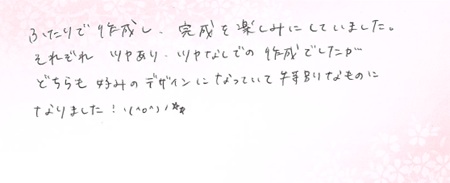 ふたりで作成し、完成を楽しみにしていました。
それぞれ ツヤあり・ツヤなしでの 作成でしたが
どちらも 好みの デザインに なっていて 特別なものに
なりました！ヽ(^o^)ノ☆★